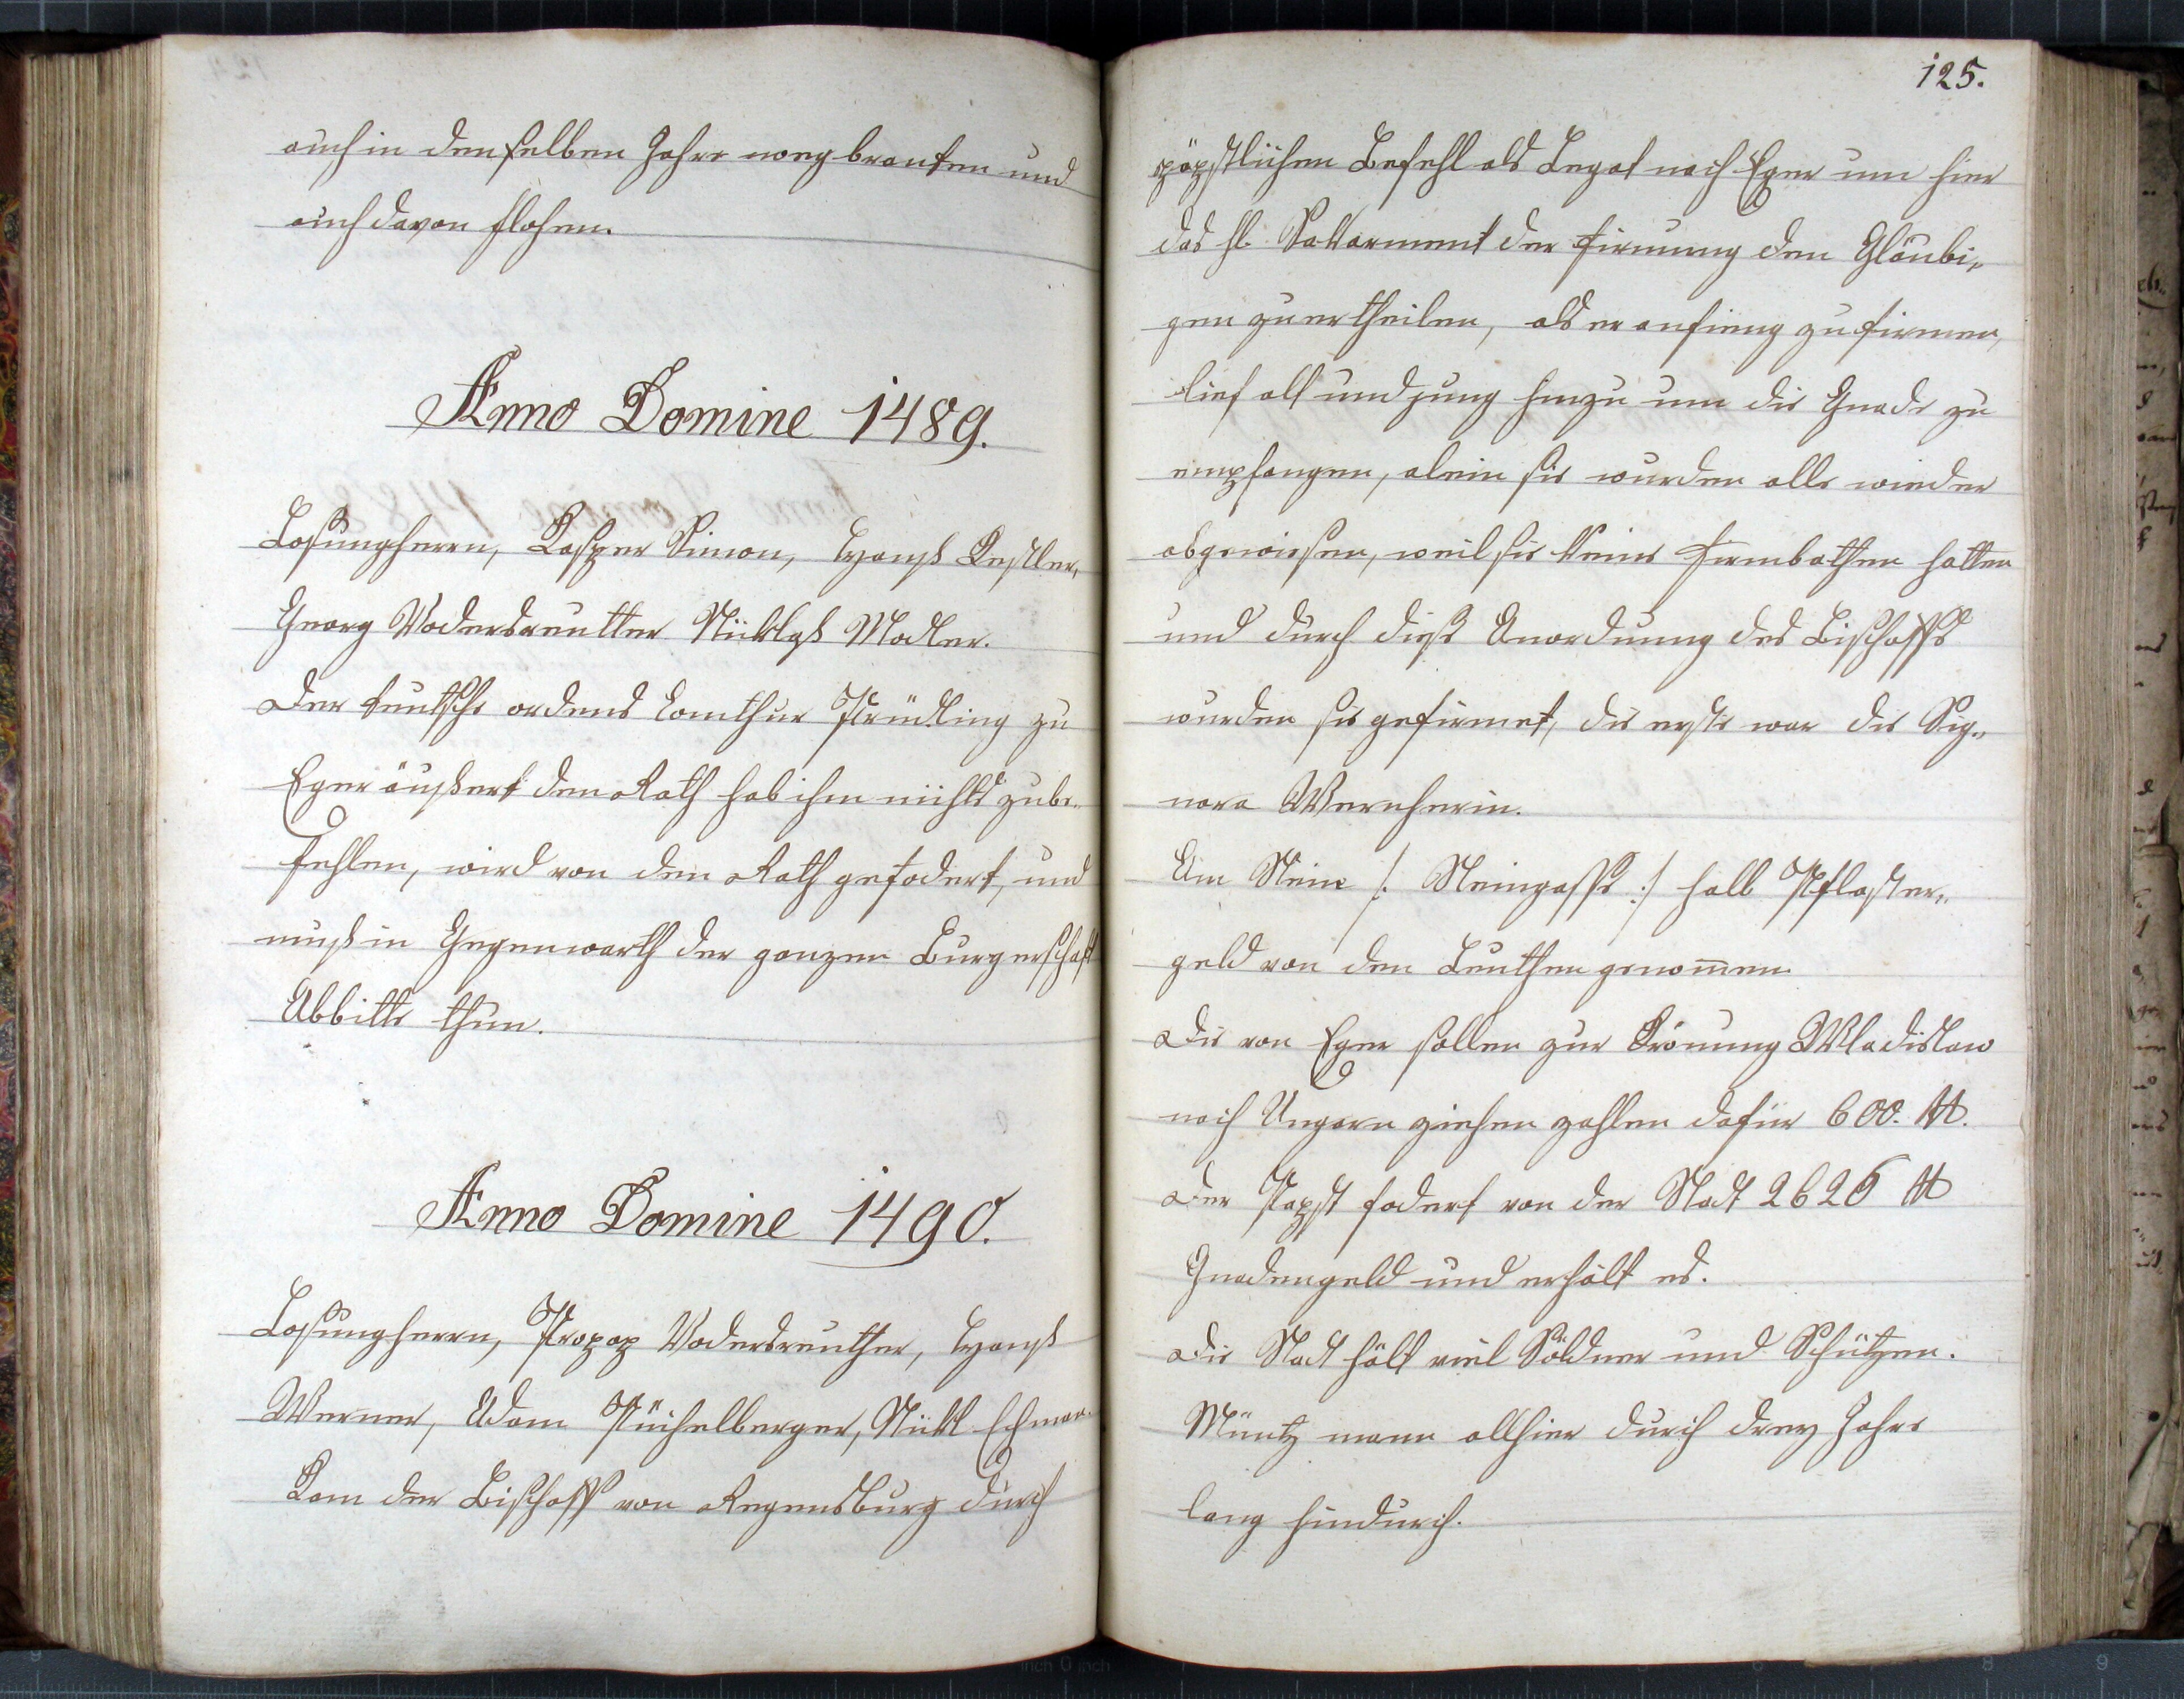 auch in denselben Jahre wegbranten und
auch davon flohen.
Anno Domine 1489.
Losungherrn, Casper Simon, Hanß Kestler,
Georg Vodersreutter Nicklaß Madler.
Der teutsche ordens Comthur zu
Eger äußert den Rath hab ihm nichts zube¬
fehlen, wird von den Rath gefodert, und
muß in Gegenwarth der ganzen Burgerschaft
Abbitte thun.
Anno Domine 1490.
Losungherrn, Propop Vodersreuther, Hanß
Werner, Adam Püchelberger, Nickl
Kam der Bischoff von Regensburg durch
125.
päpstlichen Befehl als Legat nach Eger um hier
das hl. Sakarment der firmung den Gläubi¬
gen zu ertheilen, als er anfieng zu firmen,
lief alt und jung hinzu um die Gnade zu
empfangen, alein sie wurden alle wieder
abgewiesen, weil sie keine Firmbathen hatten
und durch diese Anordnung des Bischoffs
wurden sie gefirmet, die erste war die Sig¬
nora Wernherin.
Am Stein /: Steingasse :/ halb Pflaster¬
geld von den Leuthen genommen.
Die von Eger sollen zur Krönung Wladislaw
nach Ungarn ziehen zahlen dafür 600. tt.
Der Papst fodert von der Stadt 2626 tt
Gnadengeld und erhält es.
Die Stadt hält viel Söldner und Schützen.
Müntz mann allhier durch drey Jahre
lang hindurch.